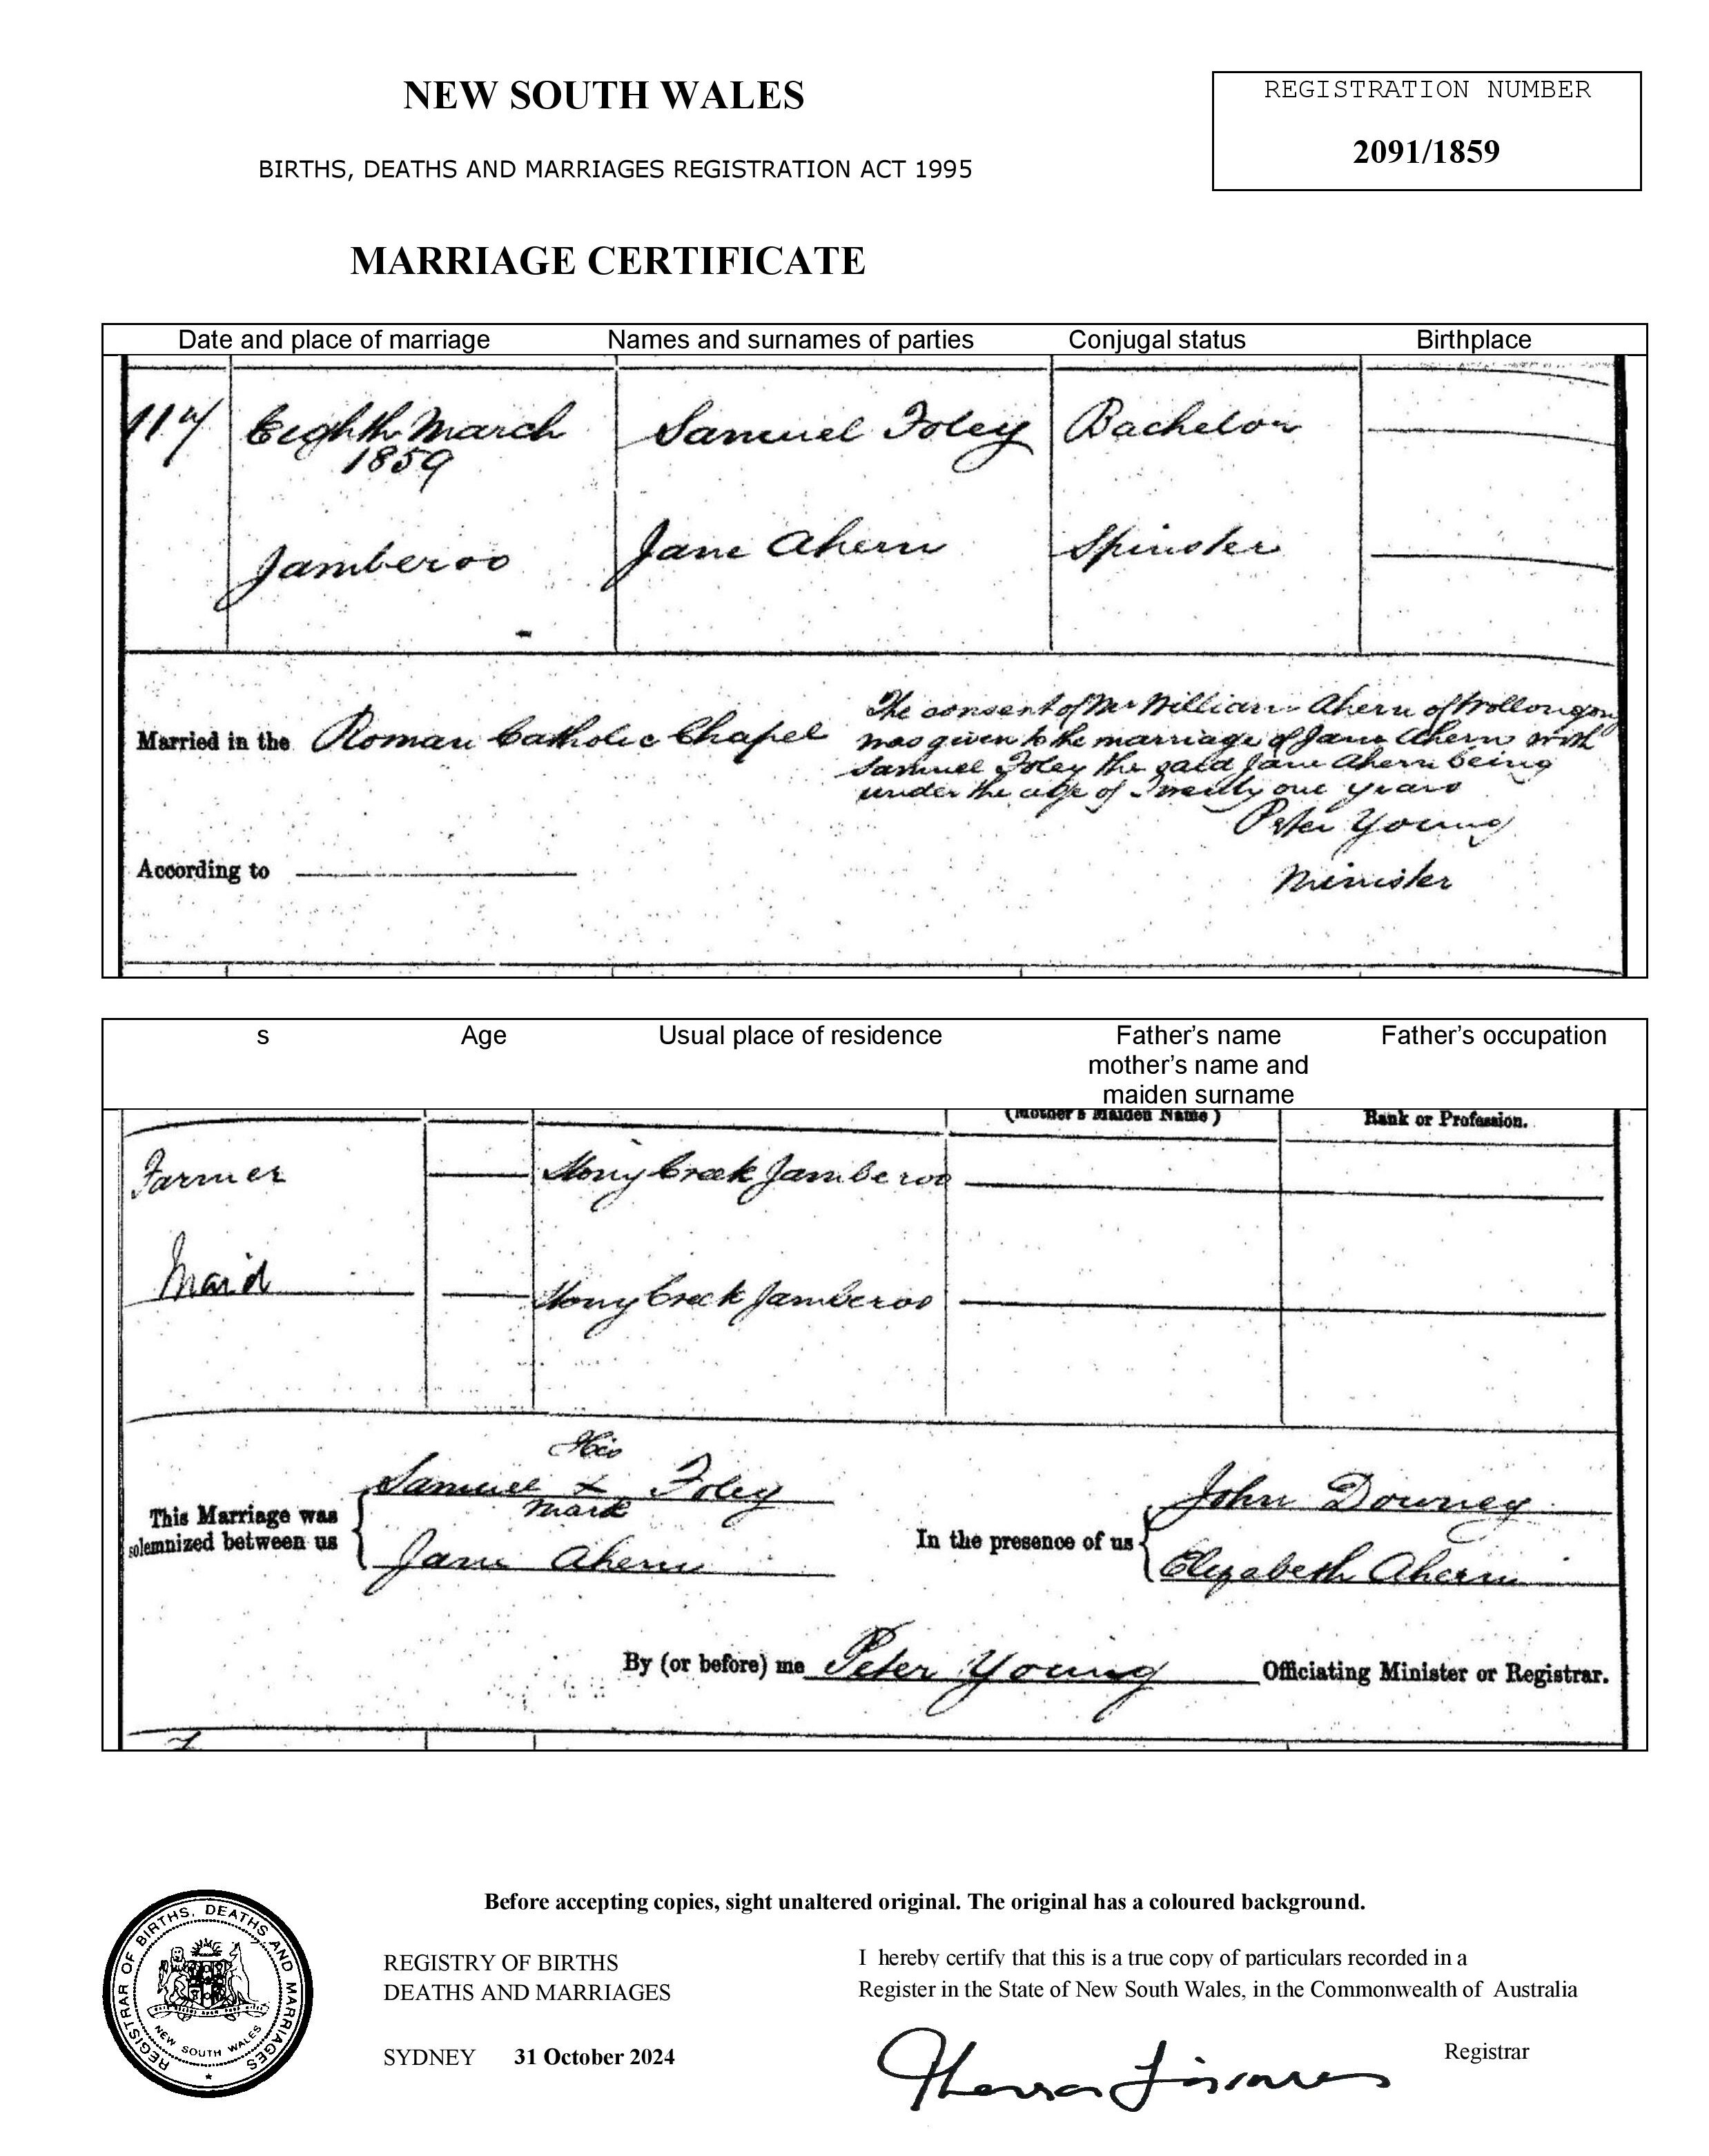 NEW SOUTH WALES
REGISTRATION NUMBER
2091/1859
BIRTHS, DEATHS AND MARRIAGES REGISTRATION ACT 1995
MARRIAGE CERTIFICATE
Date and place of marriage Names and surnames of parties Conjugal status Birthplace
Eighth March Samuel Foley Bachelor
1859
Jamberoo Jane Ahern Spinster
The consent of Mr William Ahern of Wollongong
Married in the Roman Catholic Chapel was given to the marriage of Jane Ahern with
Samuel Foley the said Jane Ahern being
under the age of Twenty one years
Peter Young
According to
Minister
s Age Usual place of residence Father's name Father's occupation
mother's name and
maiden surname
(Mother's Maiden Name) Rank or Profession.
Farmer Stony Creek Jamberoo
Maid Stony Creek Jamberoo
His
Samuel x Foley
mark
John Downey
This Marriage was
solemnized between us
In the presence of us
Jane Ahern
Elizabeth Ahern
By (or before) me Peter Young Officiating Minister or Registrar.
Before accepting copies, sight unaltered original. The original has a coloured background.
REGISTRAR OF BIRTHS, DEATHS AND MARRIAGES
NEW SOUTH WALES
REGISTRY OF BIRTHS
DEATHS AND MARRIAGES
I hereby certify that this is a true copy of particulars recorded in a
Register in the State of New South Wales, in the Commonwealth of Australia
SYDNEY 31 October 2024
Registrar